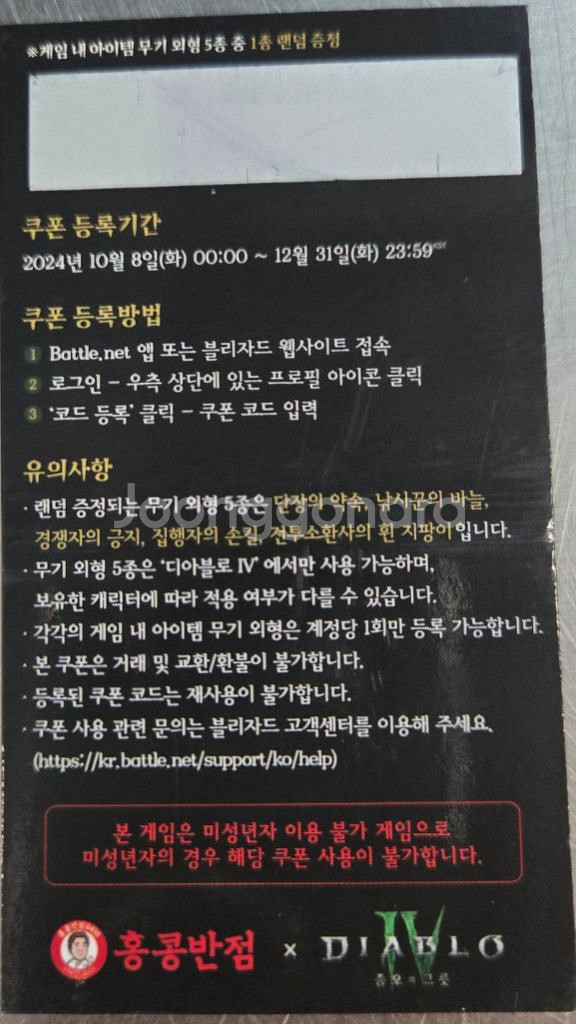 ※게임 내 아이템 무기 외형 5종 중 1종 랜덤 증정
쿠폰 등록기간
2024년 10월 8일(화) 00:00 ~ 12월 31일(화) 23:59
쿠폰 등록방법
1 Battle.net 앱 또는 블리자드 웹사이트 접속
2 로그인 - 우측 상단에 있는 프로필 아이콘 클릭
3 '코드 등록' 클릭 - 쿠폰 코드 입력
유의사항
· 랜덤 증정되는 무기 외형 5종은 단장의 약속, 낚시꾼의 바늘,
경쟁자의 긍지, 집행자의 손길, 전투소환사의 흰 지팡이입니다.
Joonggonara
· 무기 외형 5종은 '디아블로 IV' 에서만 사용 가능하며,
보유한 캐릭터에 따라 적용 여부가 다를 수 있습니다.
· 각각의 게임 내 아이템 무기 외형은 계정당 1회만 등록 가능합니다.
· 본 쿠폰은 거래 및 교환/환불이 불가합니다.
· 등록된 쿠폰 코드는 재사용이 불가합니다.
· 쿠폰 사용 관련 문의는 블리자드 고객센터를 이용해 주세요.
(https://kr.battle.net/support/ko/help)
본 게임은 미성년자 이용 불가 게임으로
미성년자의 경우 해당 쿠폰 사용이 불가합니다.
홍콩반점 × DIABLO IV
증오의 그릇